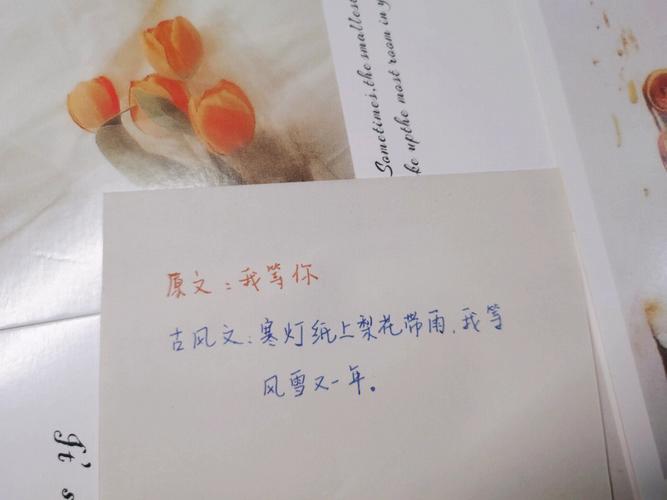 原文：我等你
古风文：寒灯纸上梨花带雨，我等
风雪又一年。
Sometimes, the smallest
up the most room in y
It's